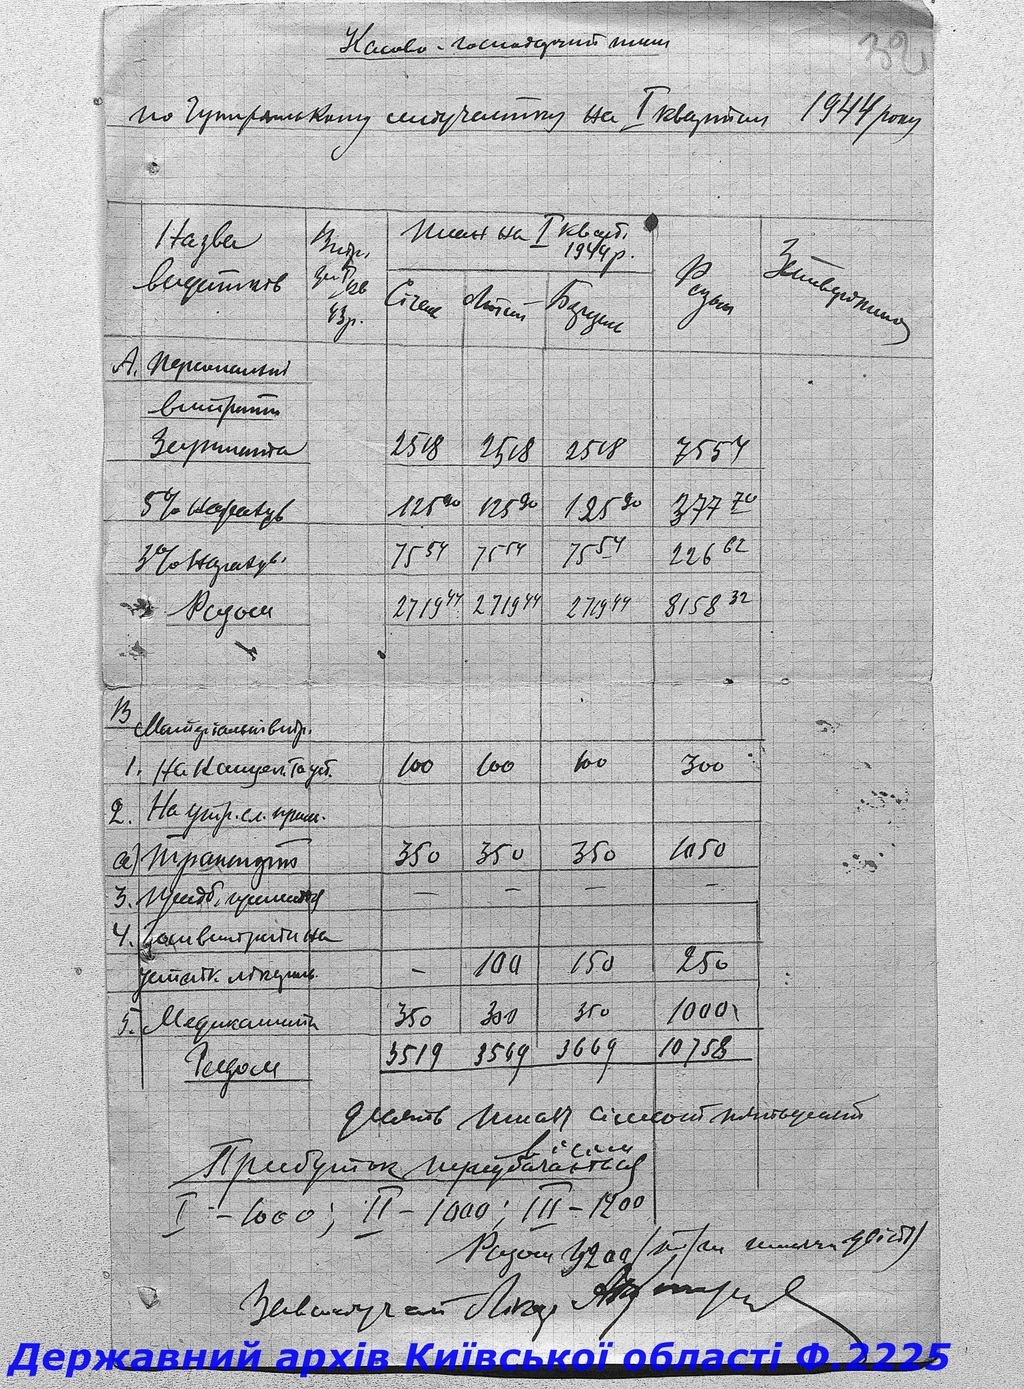 Касово-господарчий план
32
по медучастку на I квартал 1944 року
Назва видатків
Витр. за IV кв 43 р.
План на I кварт. 1944 р.
Січень Лютий Березень
Разом
Затверджено
А. Персональні
витрати
Зарплата 2518 2518 2518 7554
5% нарахув 125 90 125 90 125 90 377 70
3% нарахув. 75 54 75 54 75 54 226 62
Разом 2719 44 2719 44 2719 44 8158 32
В Матеріальні витр.
1. На канцел. та уст. 100 100 100 300
2. На утр. сл. прим.
а) Транспорт 350 350 350 1050
3. Придб. — — — —
4. витрати на
устатк. лікувальн. — 100 150 250
5. Медикаменти 350 300 350 1000
Разом 3519 3569 3669 10758
десять тисяч сімсот п'ятьдесят
вісім
Прибуток передбачається
I – 1000; II – 1000; III – 1200
Разом 3200 /три тисячі двісті/
Завмедучаст Лікар
Державний архів Київської області Ф.2225